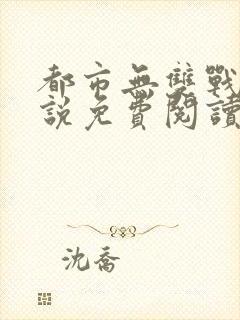 都市無雙戰
說免費閱讀
沈喬